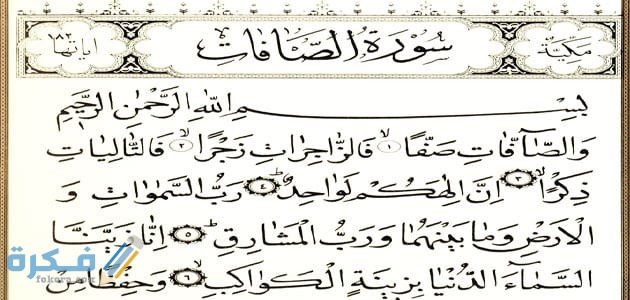 مكية سورة الصافات آياتها ١٨٢
بسم الله الرحمن الرحيم
وَالصَّافَّاتِ صَفًّا ﴿١﴾ فَالزَّاجِرَاتِ زَجْرًا ﴿٢﴾ فَالتَّالِيَاتِ
ذِكْرًا ﴿٣﴾ إِنَّ إِلٰهَكُمْ لَوَاحِدٌ ﴿٤﴾ رَبُّ السَّمٰوَاتِ وَ
الْاَرْضِ وَمَا بَيْنَهُمَا وَرَبُّ الْمَشَارِقِ ﴿٥﴾ اِنَّا زَيَّنَّا
السَّمَاءَ الدُّنْيَا بِزِينَةٍ الْكَوَاكِبِ ﴿٦﴾ وَحِفْظًا مِنْ
فكرة
fokera.com